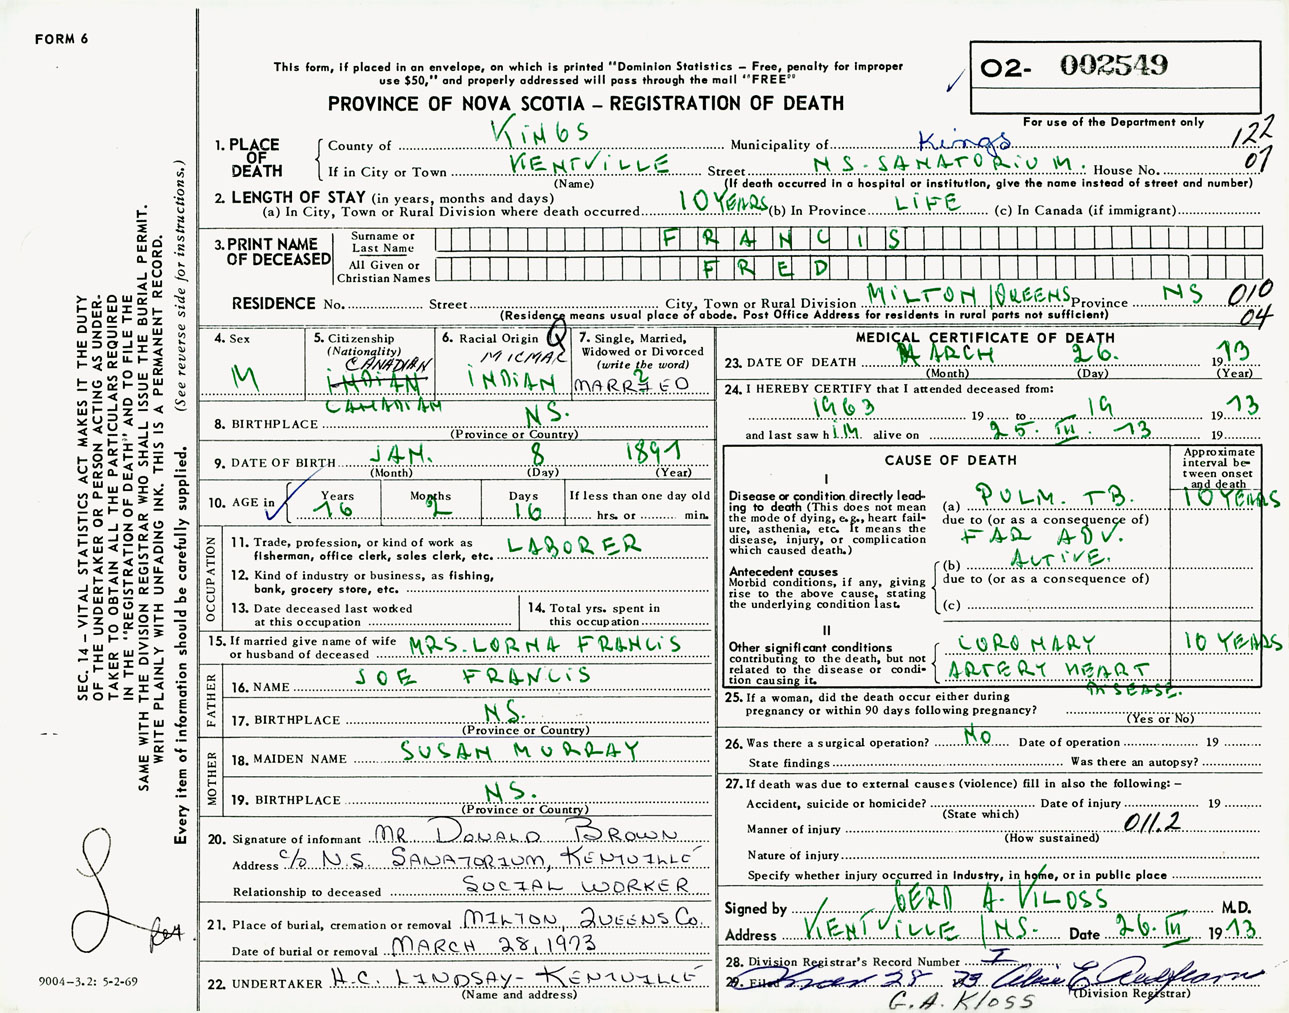 FORM 6
This form, if placed in an envelope, on which is printed "Dominion Statistics – Free, penalty for improper
use $50," and properly addressed will pass through the mail "FREE"
PROVINCE OF NOVA SCOTIA – REGISTRATION OF DEATH
O2- 002549
For use of the Department only
1. PLACE OF DEATH
County of KINGS Municipality of Kings 122
If in City or Town KENTVILLE Street N S. SANATORIUM. House No. 07
(Name) (If death occurred in a hospital or institution, give the name instead of street and number)
2. LENGTH OF STAY (in years, months and days)
(a) In City, Town or Rural Division where death occurred 10 YEARS (b) In Province LIFE (c) In Canada (if immigrant)
3. PRINT NAME OF DECEASED
Surname or Last Name FRANCIS
All Given or Christian Names FRED
RESIDENCE No. Street City, Town or Rural Division MILTON / QUEENS Province NS 010
(Residence means usual place of abode. Post Office Address for residents in rural parts not sufficient) 04
4. Sex
M
5. Citizenship
(Nationality)
CANADIAN
INDIAN
CANADIAN
6. Racial Origin Q
MICMAC
INDIAN
7. Single, Married,
Widowed or Divorced
(write the word)
2
MARRIED
8. BIRTHPLACE NS.
(Province or Country)
9. DATE OF BIRTH JAN. 8 1897
(Month) (Day) (Year)
10. AGE in
Years Months Days If less than one day old
76 2 16 hrs. or min.
OCCUPATION
11. Trade, profession, or kind of work as
fisherman, office clerk, sales clerk, etc. LABORER
12. Kind of industry or business, as fishing,
bank, grocery store, etc.
13. Date deceased last worked
at this occupation
14. Total yrs. spent in
this occupation
15. If married give name of wife
or husband of deceased MRS. LORNA FRANCIS
FATHER
16. NAME JOE FRANCIS
17. BIRTHPLACE NS.
(Province or Country)
MOTHER
18. MAIDEN NAME SUSAN MURRAY
19. BIRTHPLACE NS.
(Province or Country)
20. Signature of informant MR DONALD BROWN
Address c/o N.S. SANATORIUM, KENTVILLE
Relationship to deceased SOCIAL WORKER
21. Place of burial, cremation or removal MILTON, QUEENS Co.
Date of burial or removal MARCH 28, 1973
22. UNDERTAKER H.C. LINDSAY - KENTVILLE
(Name and address)
MEDICAL CERTIFICATE OF DEATH
23. DATE OF DEATH MARCH 26. 1973
(Month) (Day) (Year)
24. I HEREBY CERTIFY that I attended deceased from:
1963 19 to 19 1973
and last saw him alive on 25. III. 73 19
CAUSE OF DEATH
Approximate interval between onset and death
I
Disease or condition directly leading to death (This does not mean the mode of dying, e.g., heart failure, asthenia, etc. It means the disease, injury, or complication which caused death.)
(a) PULM. TB. 10 YEARS
due to (or as a consequence of)
FAR ADV.
ACTIVE.
Antecedent causes
Morbid conditions, if any, giving rise to the above cause, stating the underlying condition last.
(b)
due to (or as a consequence of)
(c)
II
Other significant conditions
contributing to the death, but not related to the disease or condition causing it.
CORONARY 10 YEARS
ARTERY HEART
DISEASE.
25. If a woman, did the death occur either during
pregnancy or within 90 days following pregnancy?
(Yes or No)
26. Was there a surgical operation? No Date of operation 19
State findings Was there an autopsy?
27. If death was due to external causes (violence) fill in also the following: –
Accident, suicide or homicide? Date of injury 19
(State which)
Manner of injury 011.2
(How sustained)
Nature of injury
Specify whether injury occurred in Industry, in home, or in public place
Signed by M.D.
Address KENTVILLE / NS. Date 26. III 1973
28. Division Registrar's Record Number
29. Filed 28 73
(Division Registrar)
G.A. Kloss
SEC. 14 – VITAL STATISTICS ACT MAKES IT THE DUTY
OF THE UNDERTAKER OR PERSON ACTING AS UNDER-
TAKER TO OBTAIN ALL THE PARTICULARS REQUIRED
IN THE "REGISTRATION OF DEATH" AND TO FILE THE
SAME WITH THE DIVISION REGISTRAR WHO SHALL ISSUE THE BURIAL PERMIT.
WRITE PLAINLY WITH UNFADING INK. THIS IS A PERMANENT RECORD.
Every item of information should be carefully supplied. (See reverse side for instructions.)
9004-3.2: 5-2-69